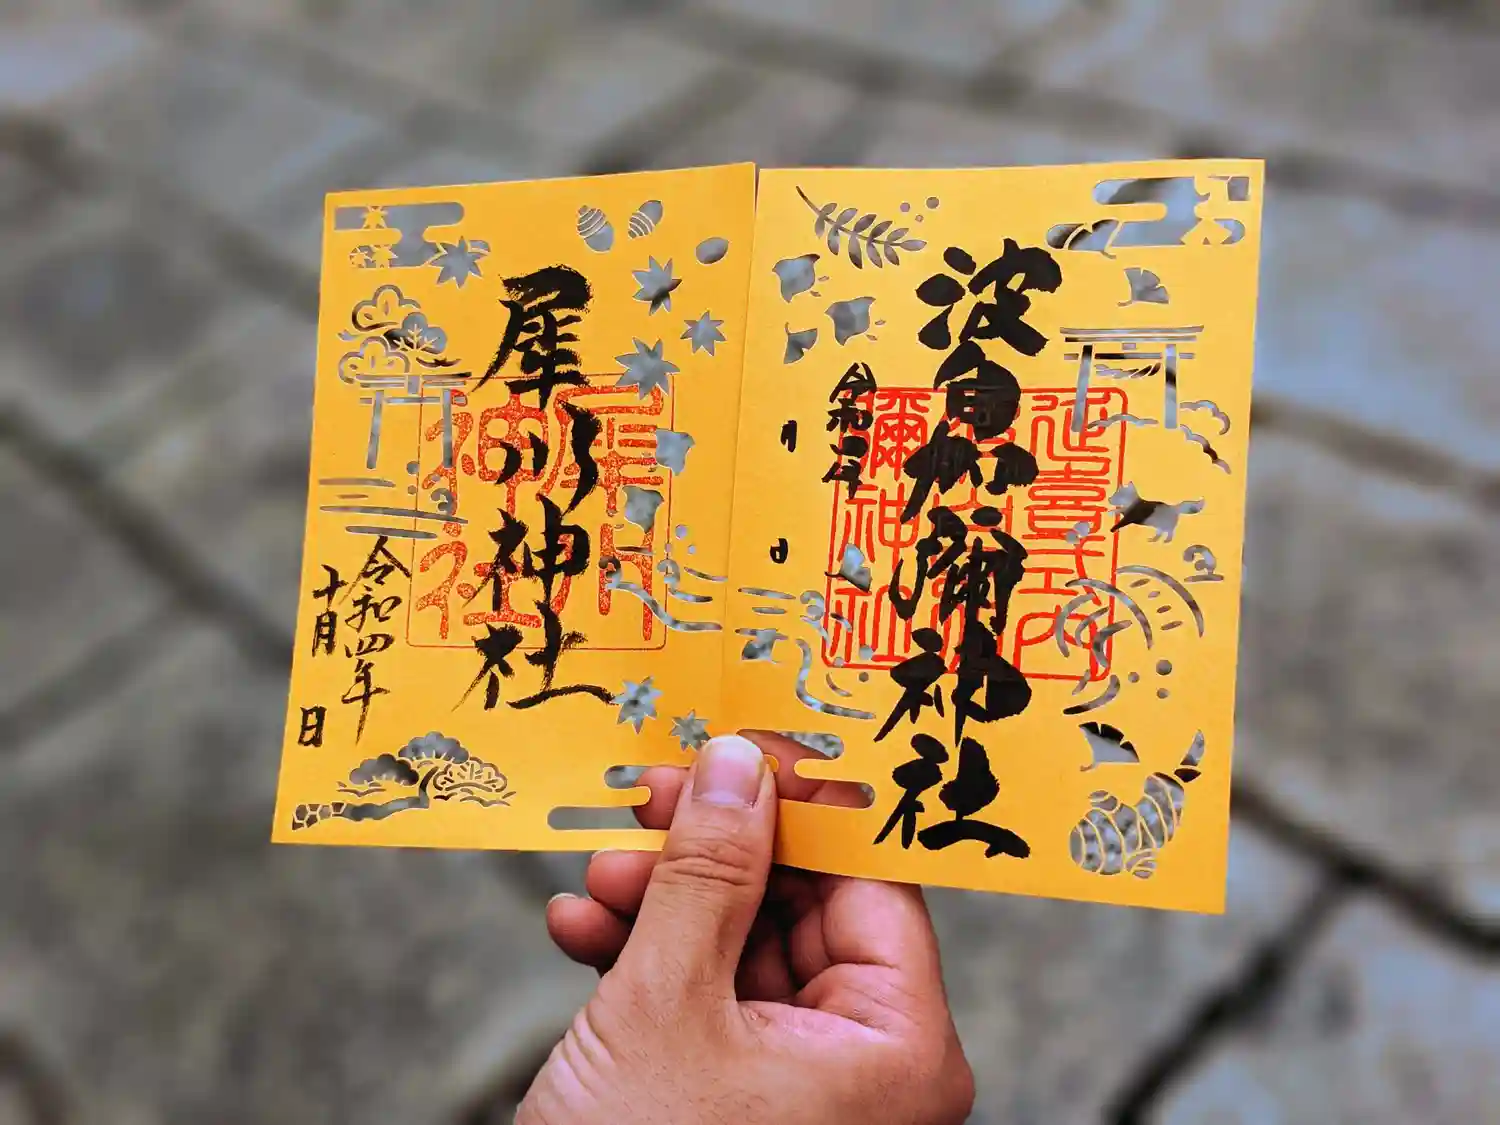 波自加彌神社
延喜式内
彌神社
令和
月
日
犀川神社
犀川
神社
令和四年
十月
日